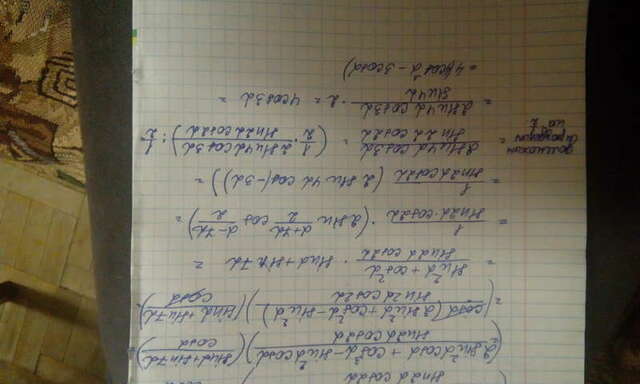 sin2α cos2α cosα
(2sin²α cosα + cos³α - sin²α cosα / sin2α cos2α)(sinα + sin7α / cosα) =
= (cosα(2sin²α + cos²α - sin²α) / sin2α cos2α)(sinα + sin7α / cosα) =
= sin²α + cos²α / sin2α cos2α · sinα + sin7α =
= 1 / sin2α · cos2α · (2 sin α+7α / 2 cos α-7α / 2) =
= 1 / sin2α cos2α (2 sin 4α cos(-3α)) =
домножим
на 1/2
= 2 sin 4α cos3α / sin2α cos2α = (1/2 · 2 sin 4α cos3α / sin2α cos2α) : 1/2
= 2 sin 4α cos3α / sin 4α · 2 = 4 cos3α =
= 4(4cos³α - 3cosα)